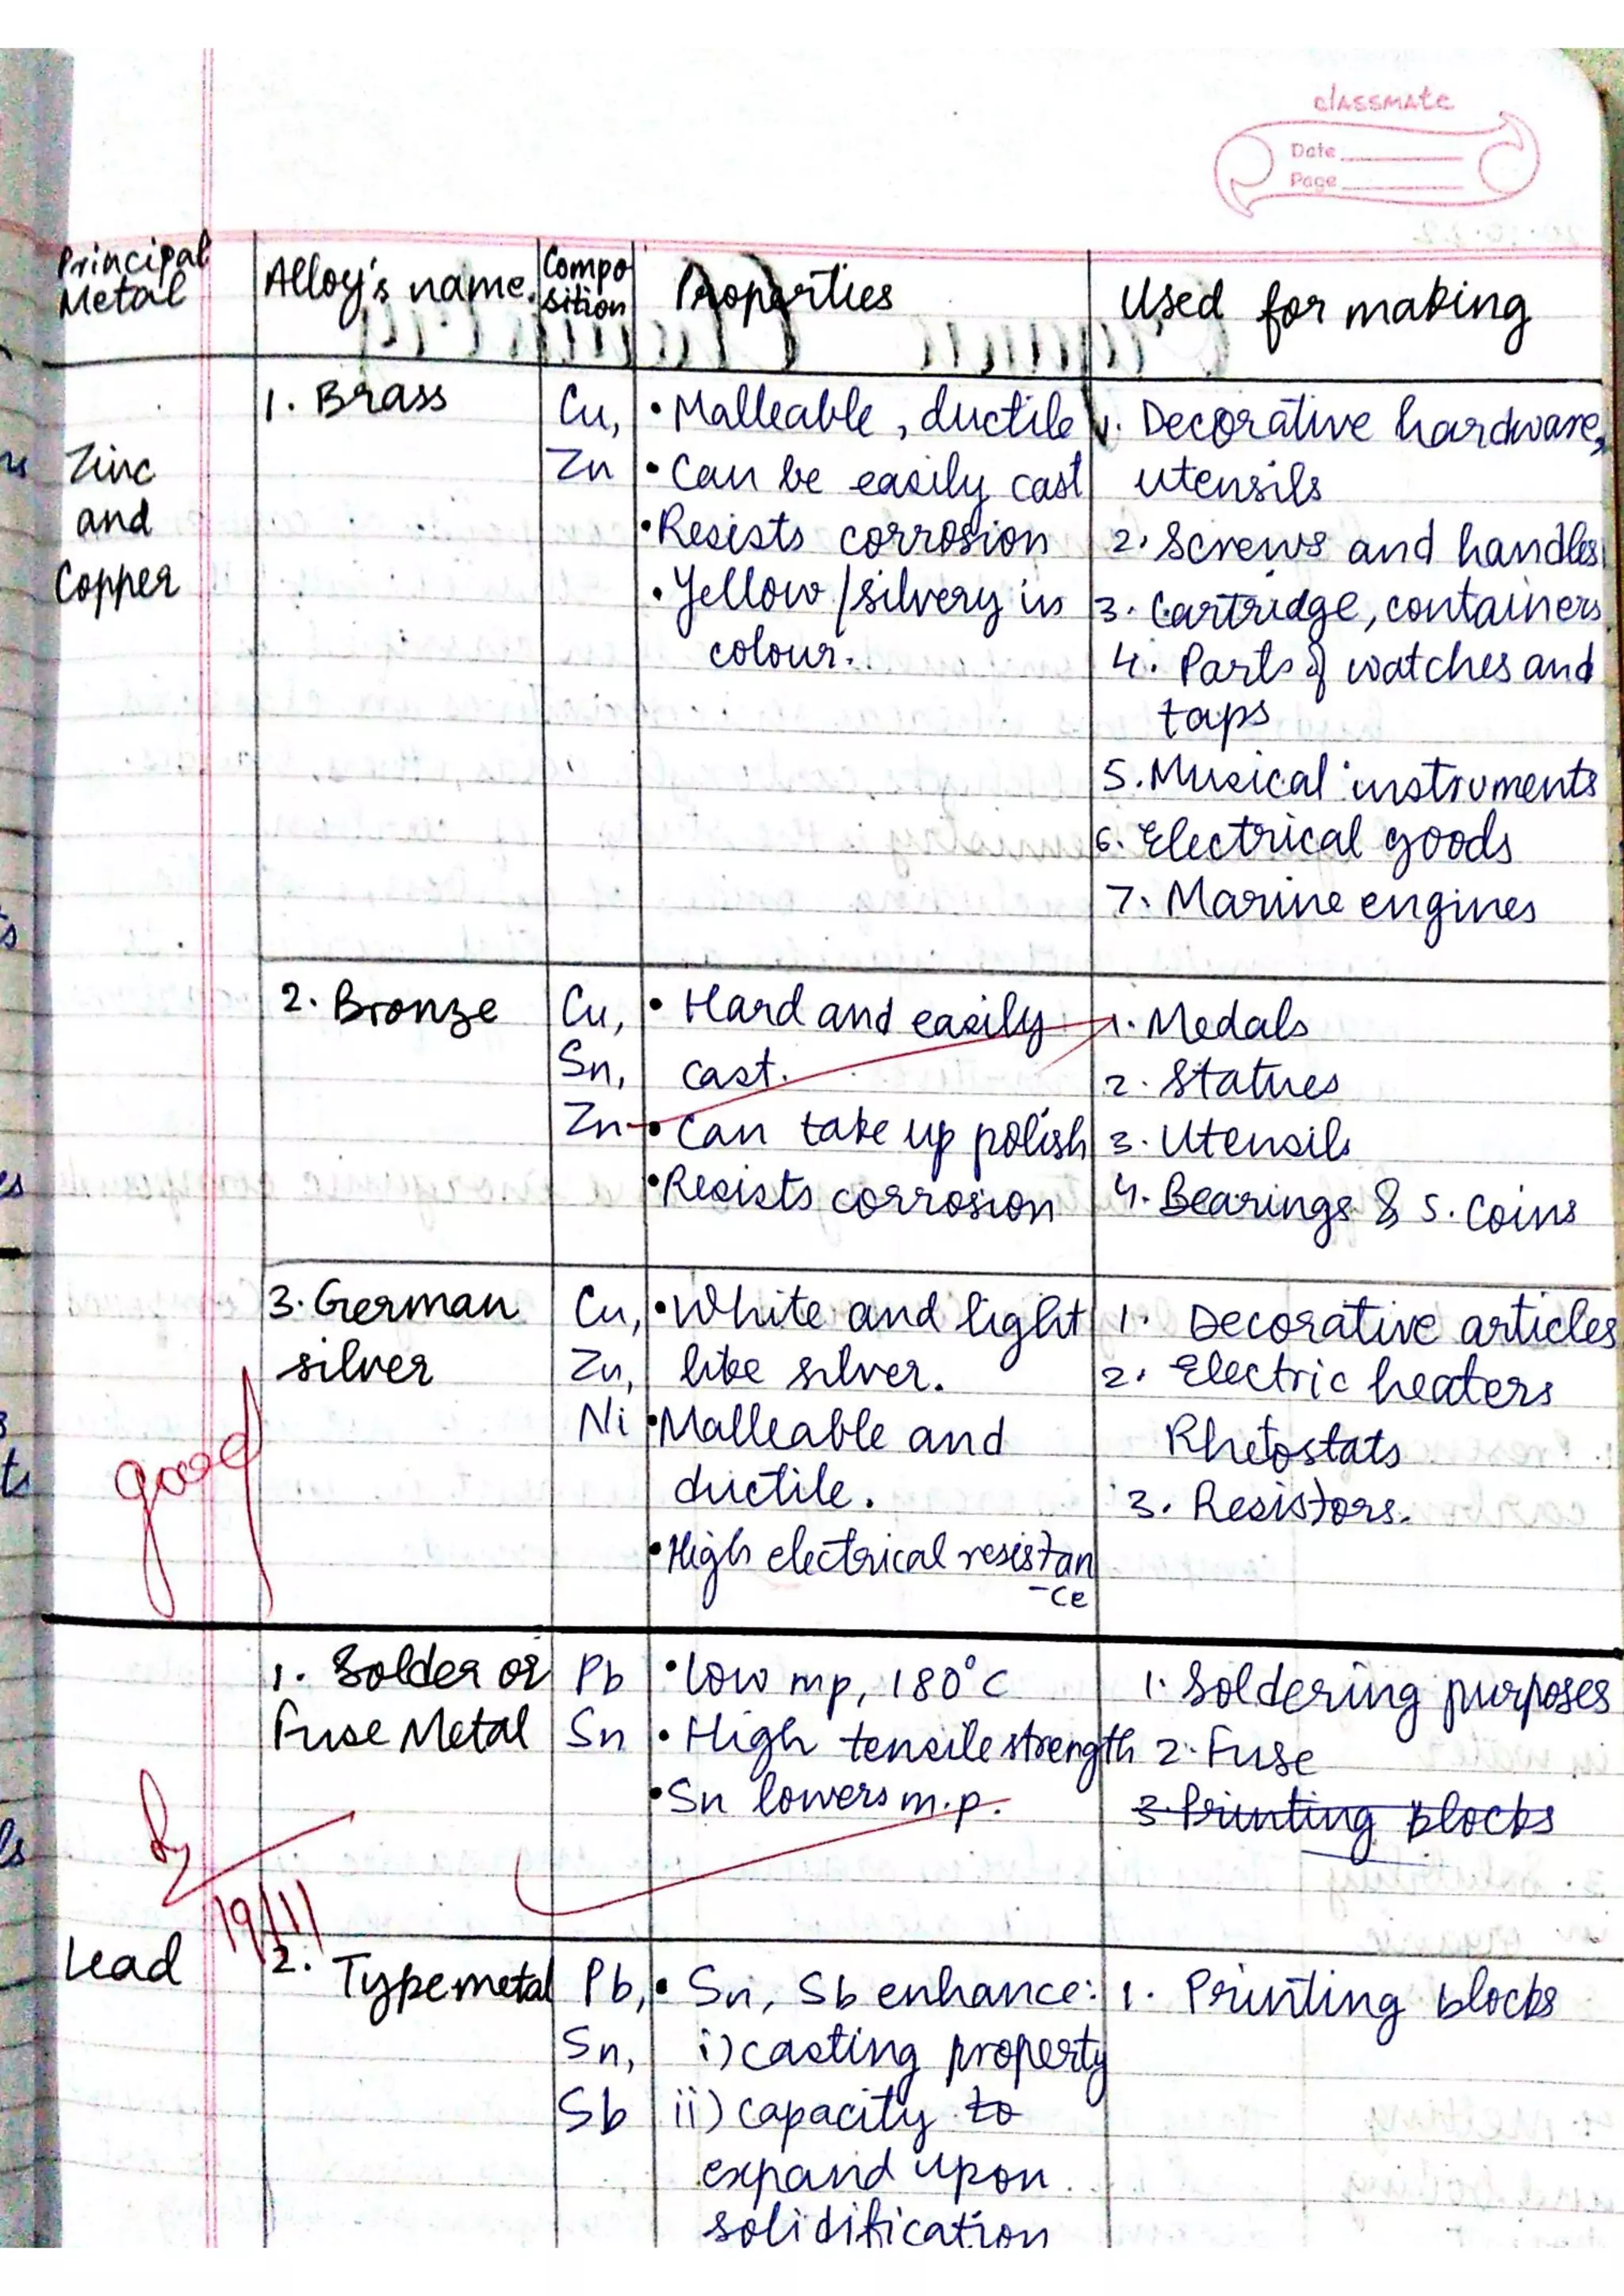 classmate
Date
Page
Principal Metal
Alloy's name.
Compo
sition
Properties
Used for making
Zinc
and
Copper
1. Brass
Cu,
Zn
• Malleable, ductile
• Can be easily cast
• Resists corrosion
• Yellow/silvery in
colour.
1. Decorative hardware,
utensils
2. Screws and handles
3. Cartridge, containers
4. Parts of watches and
taps
5. Musical instruments
6. Electrical goods
7. Marine engines
2. Bronze
Cu,
Sn,
Zn
• Hard and easily
cast.
• Can take up polish
• Resists corrosion
1. Medals
2. Statues
3. Utensils
4. Bearings & 5. Coins
3. German
silver
Cu,
Zn,
Ni
• White and light
like silver.
• Malleable and
ductile.
• High electrical resistan
-ce
1. Decorative articles
2. Electric heaters
Rhetostats
3. Resistors.
good
1. Solder or
Fuse Metal
Pb
Sn
• low mp, 180°C
• High tensile strength
• Sn lowers m.p.
1. Soldering purposes
2. Fuse
3. Printing blocks
19/11
Lead
2. Type metal
Pb,
Sn,
Sb
• Sn, Sb enhance:
i) casting property
ii) capacity to
expand upon
solidification
1. Printing blocks